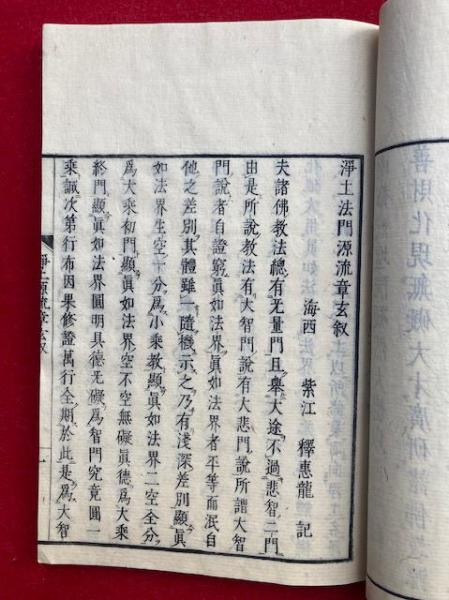 淨土法門源流章玄叙
海西 紫江 釋惠龍 記
夫諸佛教法總有无量門且舉大途不過悲智二門
由是所說教法有大智門說有大悲門說所謂大智
門說者自證窮眞如法界眞如法界者平等而泯自
他之差別其體雖一隨機示之乃有淺深差別顯眞
如法界生空十分爲小乘教顯眞如法界二空全分
爲大乘初門顯眞如法界空不空無礙眞德爲大乘
終門顯眞如法界圓明具德无礙爲智門究竟圓一
乘誠次第行布因果修證萬行全期於此是爲大智
淨土源流章玄叙
一
善財化現無礙大